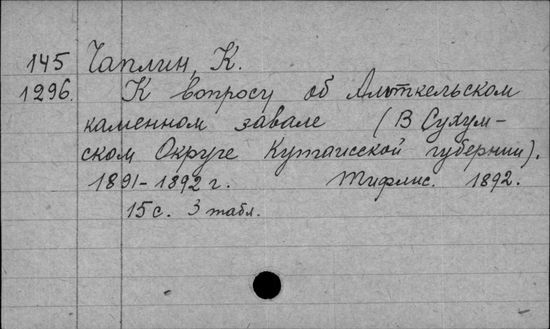 145 Чаплин, К.
1296. К вопросу об Амткельском
каменном завале (В Сухум-
ском Округе Кутаисской губернии).
1891-1892 г. Тифлис. 1892.
15 с. 3 табл.